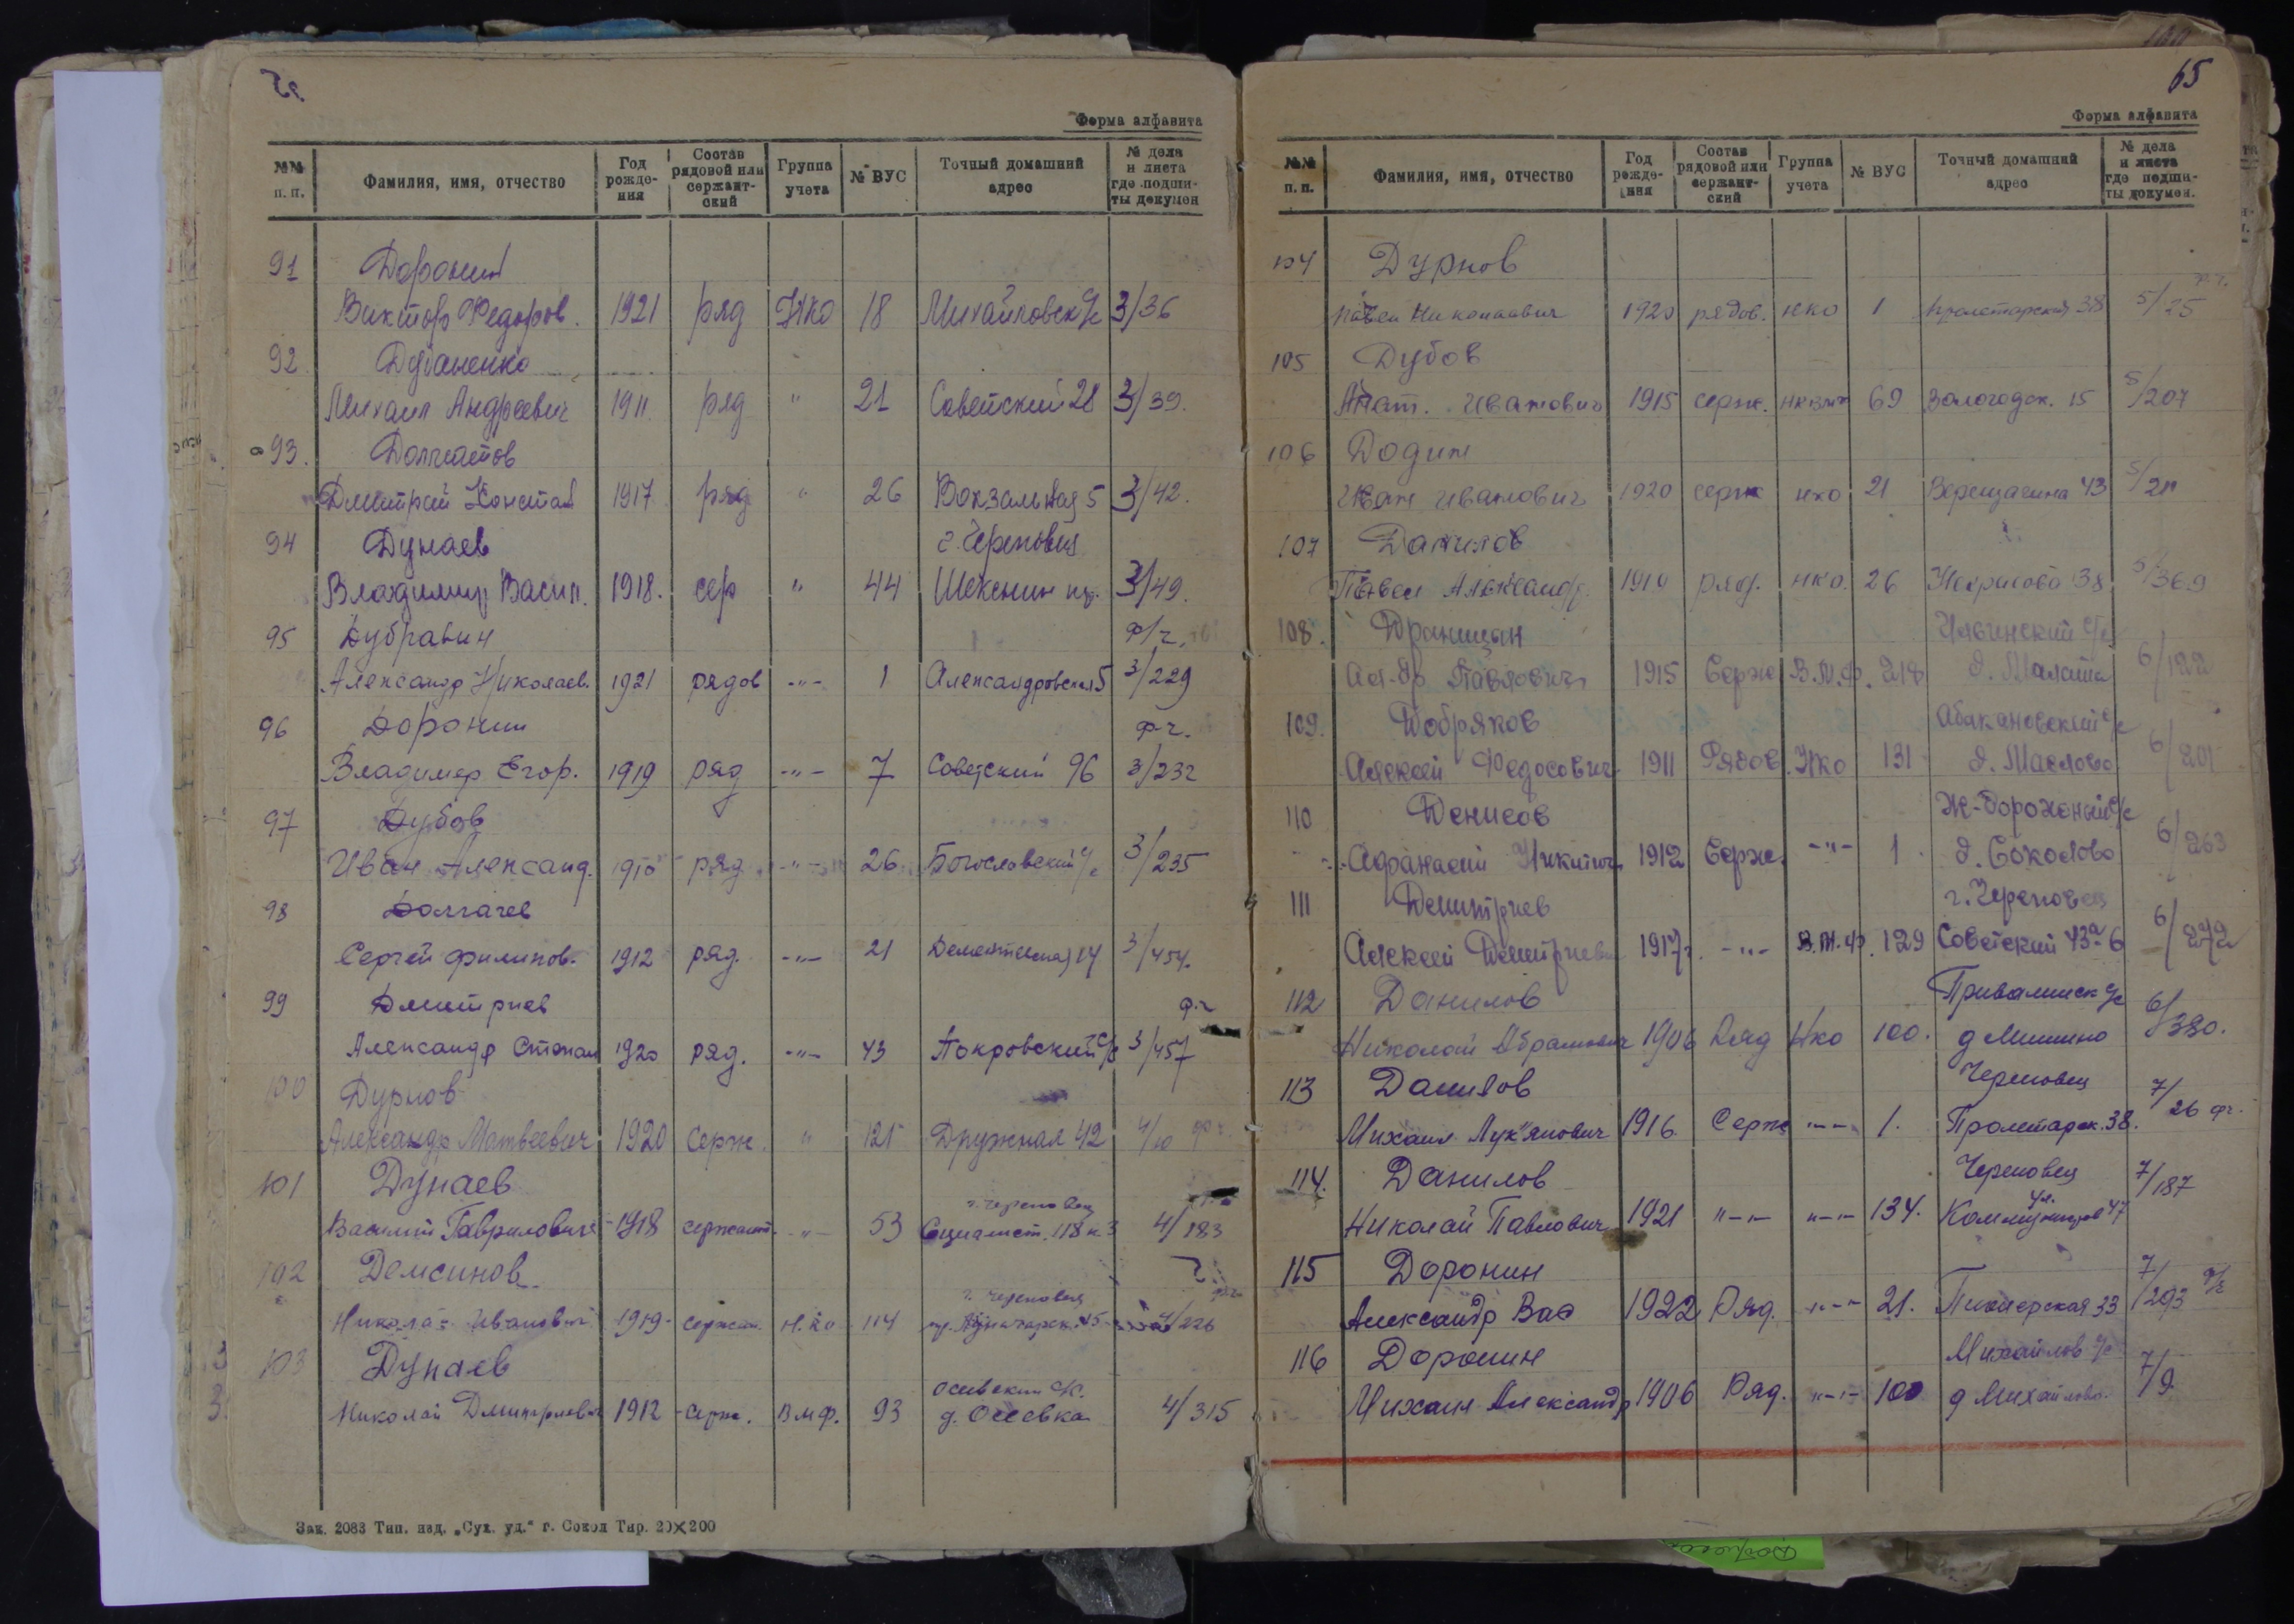 Форма алфавита
№№ п. п. Фамилия, имя, отчество Год рожде-ния Состав рядовой или сержант-ский Группа учета № ВУС Точный домашний адрес № дела и листа где подши-ты докумен
91 Доронин
Виктор Федоров. 1921 ряд НКО 18 Михайловск с/с 3/36
92
Михаил Андреевич 1911 ряд " 21 Советский 28 3/39.
93. Долгатов
Дмитрий Констан 1917 ряд " 26 Вокзальная 5 3/42.
94 Дунаев г. Череповец
Владимир Васил. 1918. сер " 44 Шекснин пр. 3/49.
95 Дубравин ф/г.
Александр Николаев. 1921 рядов -"- 1 Александровская 5 3/229
96 Доронин ф г.
Владимер Егор. 1919 ряд -"- 7 Советский 96 3/232
97 Дубов
Иван Александ. 1910 ряд -"- 26 Богословский с/с 3/235
98 Долгачев
Сергей Филипов. 1912 ряд. -"- 21 14 3/454.
99 Дмитриев ф.г
Александр Степан 1920 ряд. -"- 43 Покровский с/с 3/457
100 Дурнов
Александр Матвеевич 1920 Серж. " 121 Дружная 42 4/10
101 Дунаев г. Череповец
Василий Гаврилович 1918 сержант. -"- 53 Социалист. 118 к 3 4/183
102 Демсинов г. Череповец
Николай Иванович 1919 сержан. Н.Ко 114 4/226
103 Дунаев Осеевский с/с.
Николай Дмитриевич 1912 Серж. ВМФ. 93 д. Осеевка 4/315
Зак. 2083 Тип. изд. „Сух. уд.“ г. Сокол Тир. 20×200
65
Форма алфавита
№№ п. п. Фамилия, имя, отчество Год рожде-ния Состав рядовой или сержант-ский Группа учета № ВУС Точный домашний адрес № дела и листа где подши-ты докумен.
104 Дурнов
Павел Николаевич 1920 рядов. НКО 1 Пролетарская 38 5/25
105 Дубов
Анат. Иванович 1915 серж. 69 Вологодск. 15 5/207
106 Додин
Иван Иванович 1920 серж нко 21 Верещагина 43
107 Данилов
Павел Александр. ряд. НКО. 26 Некрасова 38 5/369
108.
Ал-др Павлович 1915 Серж В.М.Ф. 218 6/122
109. Добряков Абакановский с/с
Алексей Федосович 1911 Рядов. Нко 131 д. Маслово 6/201
110 Денисов Ж-дорожный с/с
Афанасий Никитич 1912 Серж. -"- 1 д. Соколово 6/263
111 Дмитриев г. Череповец
Алексей Дмитриевич 1917г. -"- В.М.Ф. 129 Советский 43а-6 6/272
112 Данилов с/с
Николай Абрамович 1906 Ряд Нко 100. д Мишино 6/380.
113 Данилов Череповец
Михаил Лук"янович 1916 Серж -"- 1. Пролетарск. 38. 7/26 фг.
114. Данилов Череповец
Николай Павлович 1921 "-"- "-"- 134. ул. Коммунаров 47 7/187
115 Доронин
Александр Вас 1922 Ряд. "-"- 21. Пионерская 33 7/293
116 Доронин Михайлов с/с
Михаил Александр 1906 Ряд. "-"- 100 д Михайлово. 7/9.